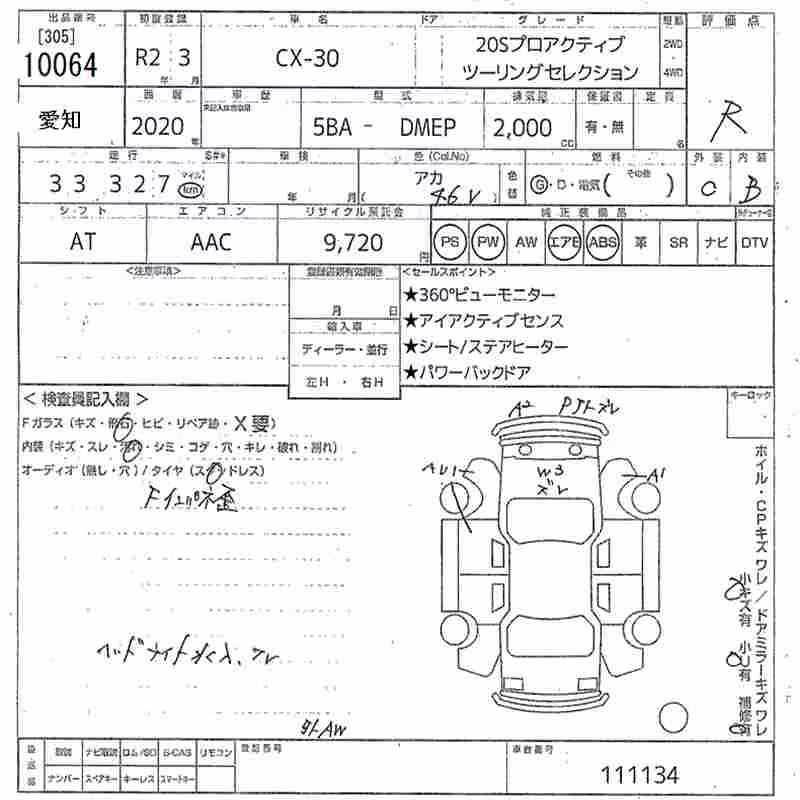 出品番号 初度登録 車名 ドア グレード 駆動 評価点
[305]
10064 R2 年 3 月 CX-30 20Sプロアクティブ 2WD
ツーリングセレクション 4WD
R
愛知 西暦 車歴 型式 排気量 保証書 定員
2020 年 5BA - DMEP 2,000 cc 有・無 名
走行 車検 色(Col.No) 燃料 外装 内装
33 327 マイル km 年 月 アカ 46V 色替 G・D・電気( その他 ) C B
シフト エアコン リサイクル預託金 純正装備品
AT AAC 9,720 円 PS PW AW エアB ABS 革 SR ナビ DTV
<注意事項> <セールスポイント>
月 日 ★360°ビューモニター
輸入車 ★アイアクティブセンス
ディーラー・並行 ★シート/ステアヒーター
左H ・ 右H ★パワーバックドア
< 検査員記入欄 > キーロック
Fガラス(キズ・飛石・ヒビ・リペア跡・X要)
内装(キズ・スレ・汚れ・シミ・コゲ・穴・キレ・破れ・割れ)
オーディオ(無し・穴)/タイヤ(スタッドレス)
A2
W3
ズレ
AU1
A1
ホイル・CPキズ ワレ / ドアミラーキズ ワレ
小キズ有 小U有 補修有
外AW
返却部 取説 ナビ取説 ロム/SD B-CAS リモコン 登録番号 車台番号
ナンバー スペアキー キーレス スマートキー 111134